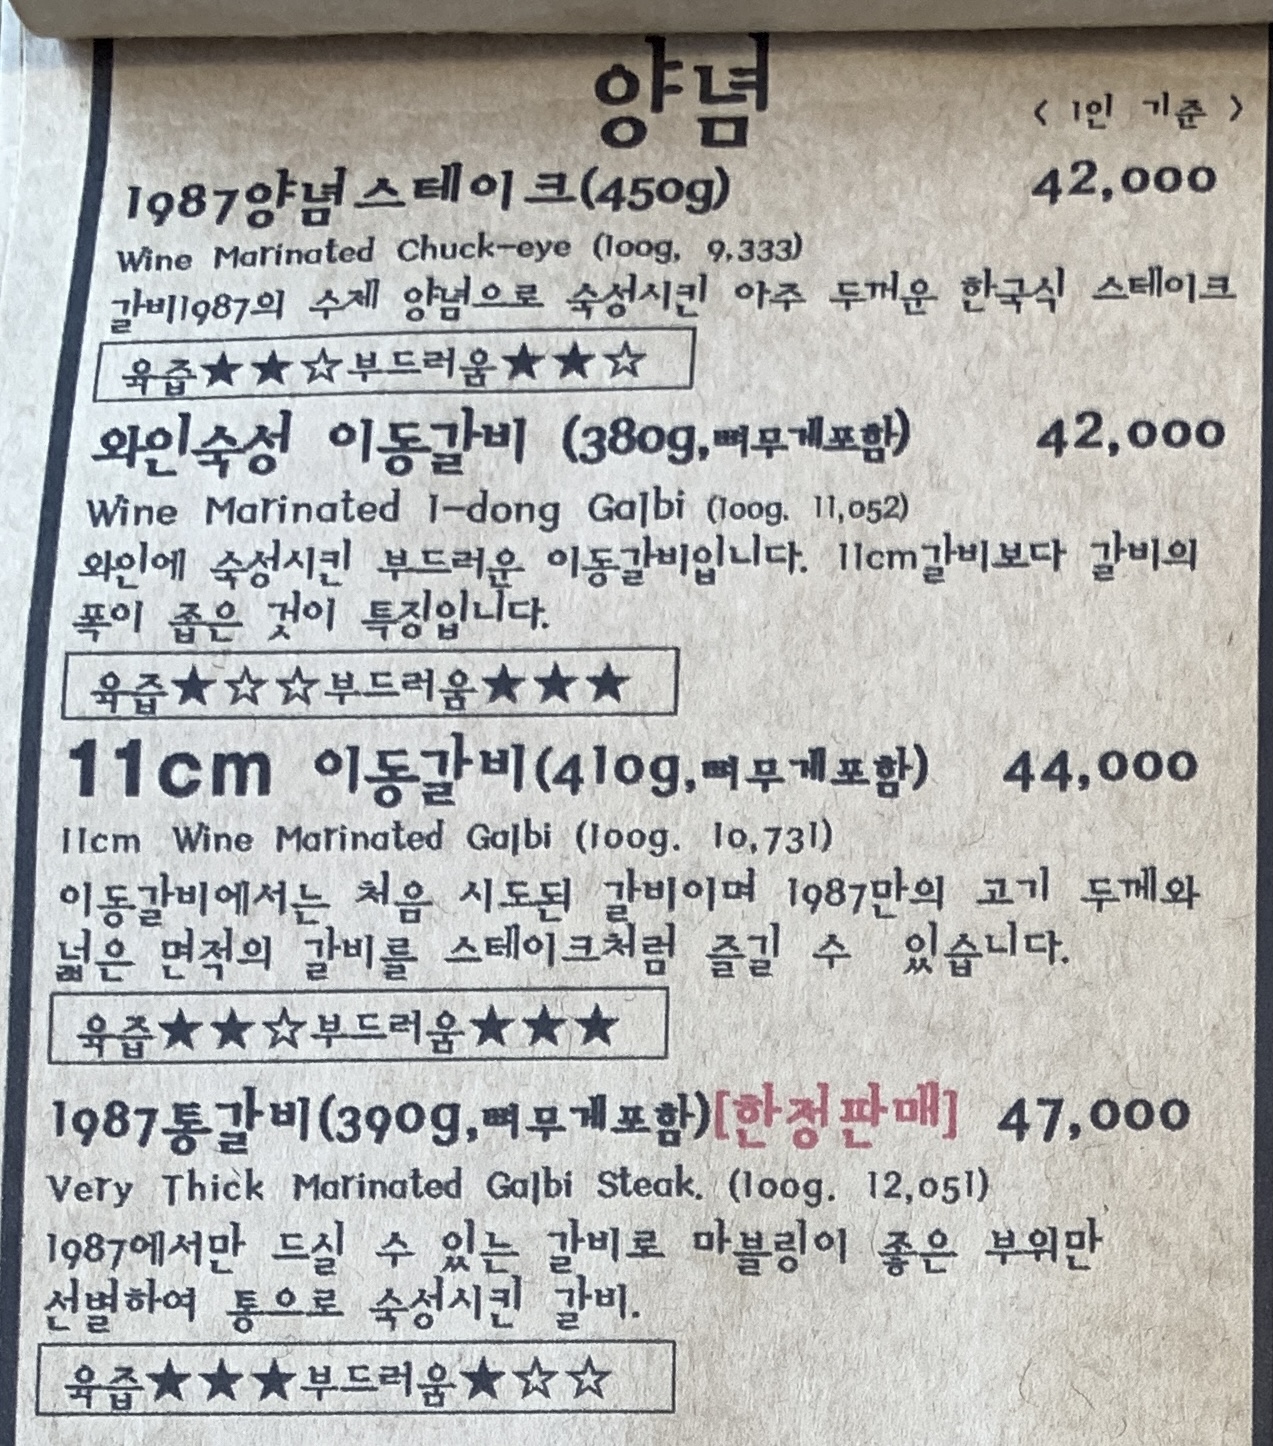 양념
< 1인 기준 >
1987양념스테이크(450g) 42,000
Wine Marinated Chuck-eye (100g, 9,333)
갈비1987의 수제 양념으로 숙성시킨 아주 두꺼운 한국식 스테이크
육즙★★☆부드러움★★☆
와인숙성 이동갈비 (380g,뼈무게포함) 42,000
Wine Marinated I-dong Galbi (100g. 11,052)
와인에 숙성시킨 부드러운 이동갈비입니다. 11cm갈비보다 갈비의
폭이 좁은 것이 특징입니다.
육즙★☆☆부드러움★★★
11cm 이동갈비(410g,뼈무게포함) 44,000
11cm Wine Marinated Galbi (100g. 10,731)
이동갈비에서는 처음 시도된 갈비이며 1987만의 고기 두께와
넓은 면적의 갈비를 스테이크처럼 즐길 수 있습니다.
육즙★★☆부드러움★★★
1987통갈비(390g,뼈무게포함)[한정판매] 47,000
Very Thick Marinated Galbi Steak. (100g. 12,051)
1987에서만 드실 수 있는 갈비로 마블링이 좋은 부위만
선별하여 통으로 숙성시킨 갈비.
육즙★★★부드러움★☆☆